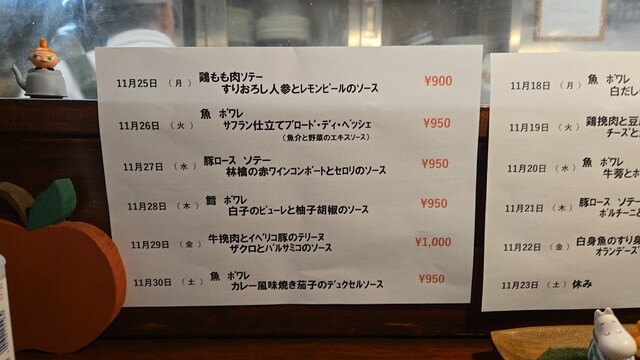 11月25日 （月） 鶏もも肉ソテー
すりおろし人参とレモンピールのソース ¥900
11月26日 （火） 魚 ポワレ
サフラン仕立てブロード・ディ・ペッシェ ¥950
（魚介と野菜のエキスソース）
11月27日 （水） 豚ロース ソテー
林檎の赤ワインコンポートとセロリのソース ¥950
11月28日 （木） 鱈 ポワレ
白子のピューレと柚子胡椒のソース ¥950
11月29日 （金） 牛挽肉とイベリコ豚のテリーヌ
ザクロとバルサミコのソース ¥1,000
11月30日 （土） 魚 ポワレ
カレー風味焼き茄子のデュクセルソース ¥950
11月18日 （月） 魚 ポワレ
白だし
11月19日 （火） 鶏挽肉と豆
チーズと
11月20日 （水） 魚 ポワレ
牛蒡と
11月21日 （木） 豚ロース ソテー
ポルチーニと
11月22日 （金） 白身魚のすり身
オランデーズ
11月23日 （土） 休み